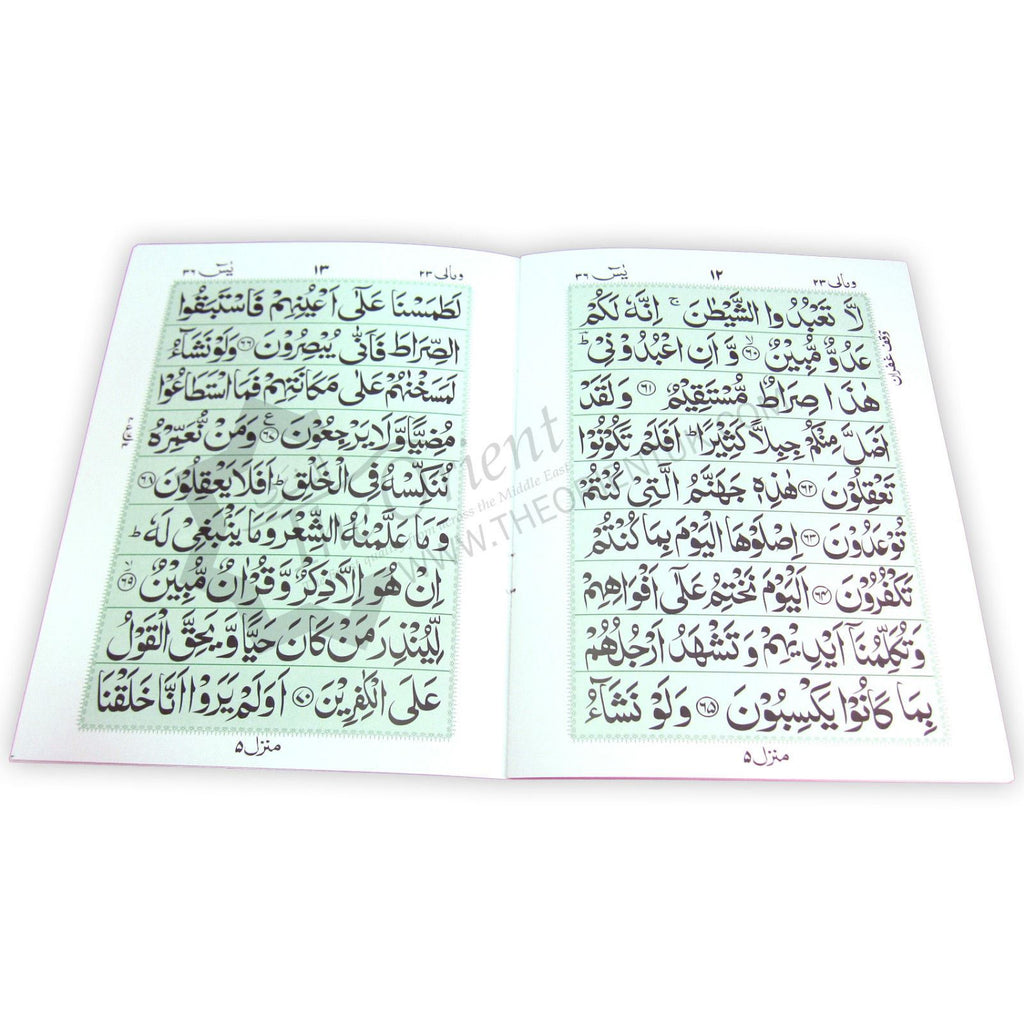 ومالی ۲۳
۱۲
یٰسٓ ۳۶
لَّا تَعْبُدُوا الشَّيْطٰنَ ۚ اِنَّهٗ لَكُمْ
عَدُوٌّ مُّبِيْنٌ ۙ﴿۶۰﴾ وَّ اَنِ اعْبُدُوْنِىْ ؕ
هٰذَا صِرَاطٌ مُّسْتَقِيْمٌ ﴿۶۱﴾ وَ لَقَدْ
اَضَلَّ مِنْكُمْ جِبِلًّا كَثِيْرًا ؕ اَفَلَمْ تَكُوْنُوْا
تَعْقِلُوْنَ ﴿۶۲﴾ هٰذِهٖ جَهَنَّمُ الَّتِىْ كُنْتُمْ
تُوْعَدُوْنَ ﴿۶۳﴾ اِصْلَوْهَا الْيَوْمَ بِمَا كُنْتُمْ
تَكْفُرُوْنَ ﴿۶۴﴾ اَلْيَوْمَ نَخْتِمُ عَلٰٓى اَفْوَاهِهِمْ
وَ تُكَلِّمُنَآ اَيْدِيْهِمْ وَ تَشْهَدُ اَرْجُلُهُمْ
بِمَا كَانُوْا يَكْسِبُوْنَ ﴿۶۵﴾ وَ لَوْ نَشَآءُ
منزل ۵
وقف غفران
ومالی ۲۳
۱۳
یٰسٓ ۳۶
لَطَمَسْنَا عَلٰٓى اَعْيُنِهِمْ فَاسْتَبَقُوا
الصِّرَاطَ فَاَنّٰى يُبْصِرُوْنَ ﴿۶۶﴾ وَ لَوْ نَشَآءُ
لَمَسَخْنٰهُمْ عَلٰى مَكَانَتِهِمْ فَمَا اسْتَطَاعُوْا
مُضِيًّا وَّ لَا يَرْجِعُوْنَ ع وَ مَنْ نُّعَمِّرْهُ
نُنَكِّسْهُ فِى الْخَلْقِ ؕ اَفَلَا يَعْقِلُوْنَ ﴿۶۸﴾
وَ مَا عَلَّمْنٰهُ الشِّعْرَ وَ مَا يَنْۢبَغِىْ لَهٗ ؕ
اِنْ هُوَ اِلَّا ذِكْرٌ وَّ قُرْاٰنٌ مُّبِيْنٌ ۙ
لِّيُنْذِرَ مَنْ كَانَ حَيًّا وَّ يَحِقَّ الْقَوْلُ
عَلَى الْكٰفِرِيْنَ ﴿۷۰﴾ اَوَلَمْ يَرَوْا اَنَّا خَلَقْنَا
منزل ۵
The Orient
from across the Middle East
WWW.THEORIENTUK.COM